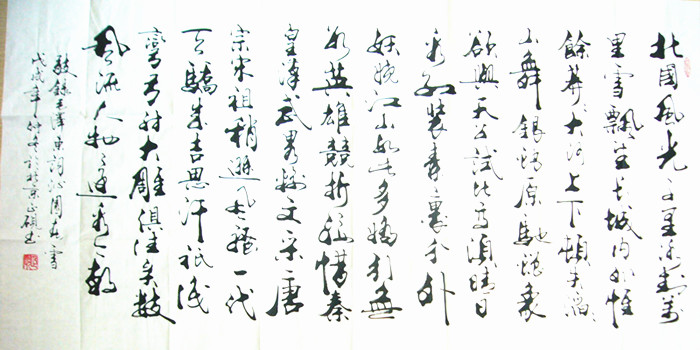 北國風光千里冰封萬
里雪飄望長城内外惟
餘莽莽大河上下頓失滔滔
山舞銀蛇原馳蠟象
欲與天公試比高須晴日
看紅裝素裹分外
妖嬈江山如此多嬌引無
數英雄競折腰惜秦
皇漢武略輸文采唐
宗宋祖稍遜風騷一代
天驕成吉思汗祇識
彎弓射大雕俱往矣數
風流人物還看今朝
敬錄毛澤東詞沁園春雪
戊戌年仲冬於北京